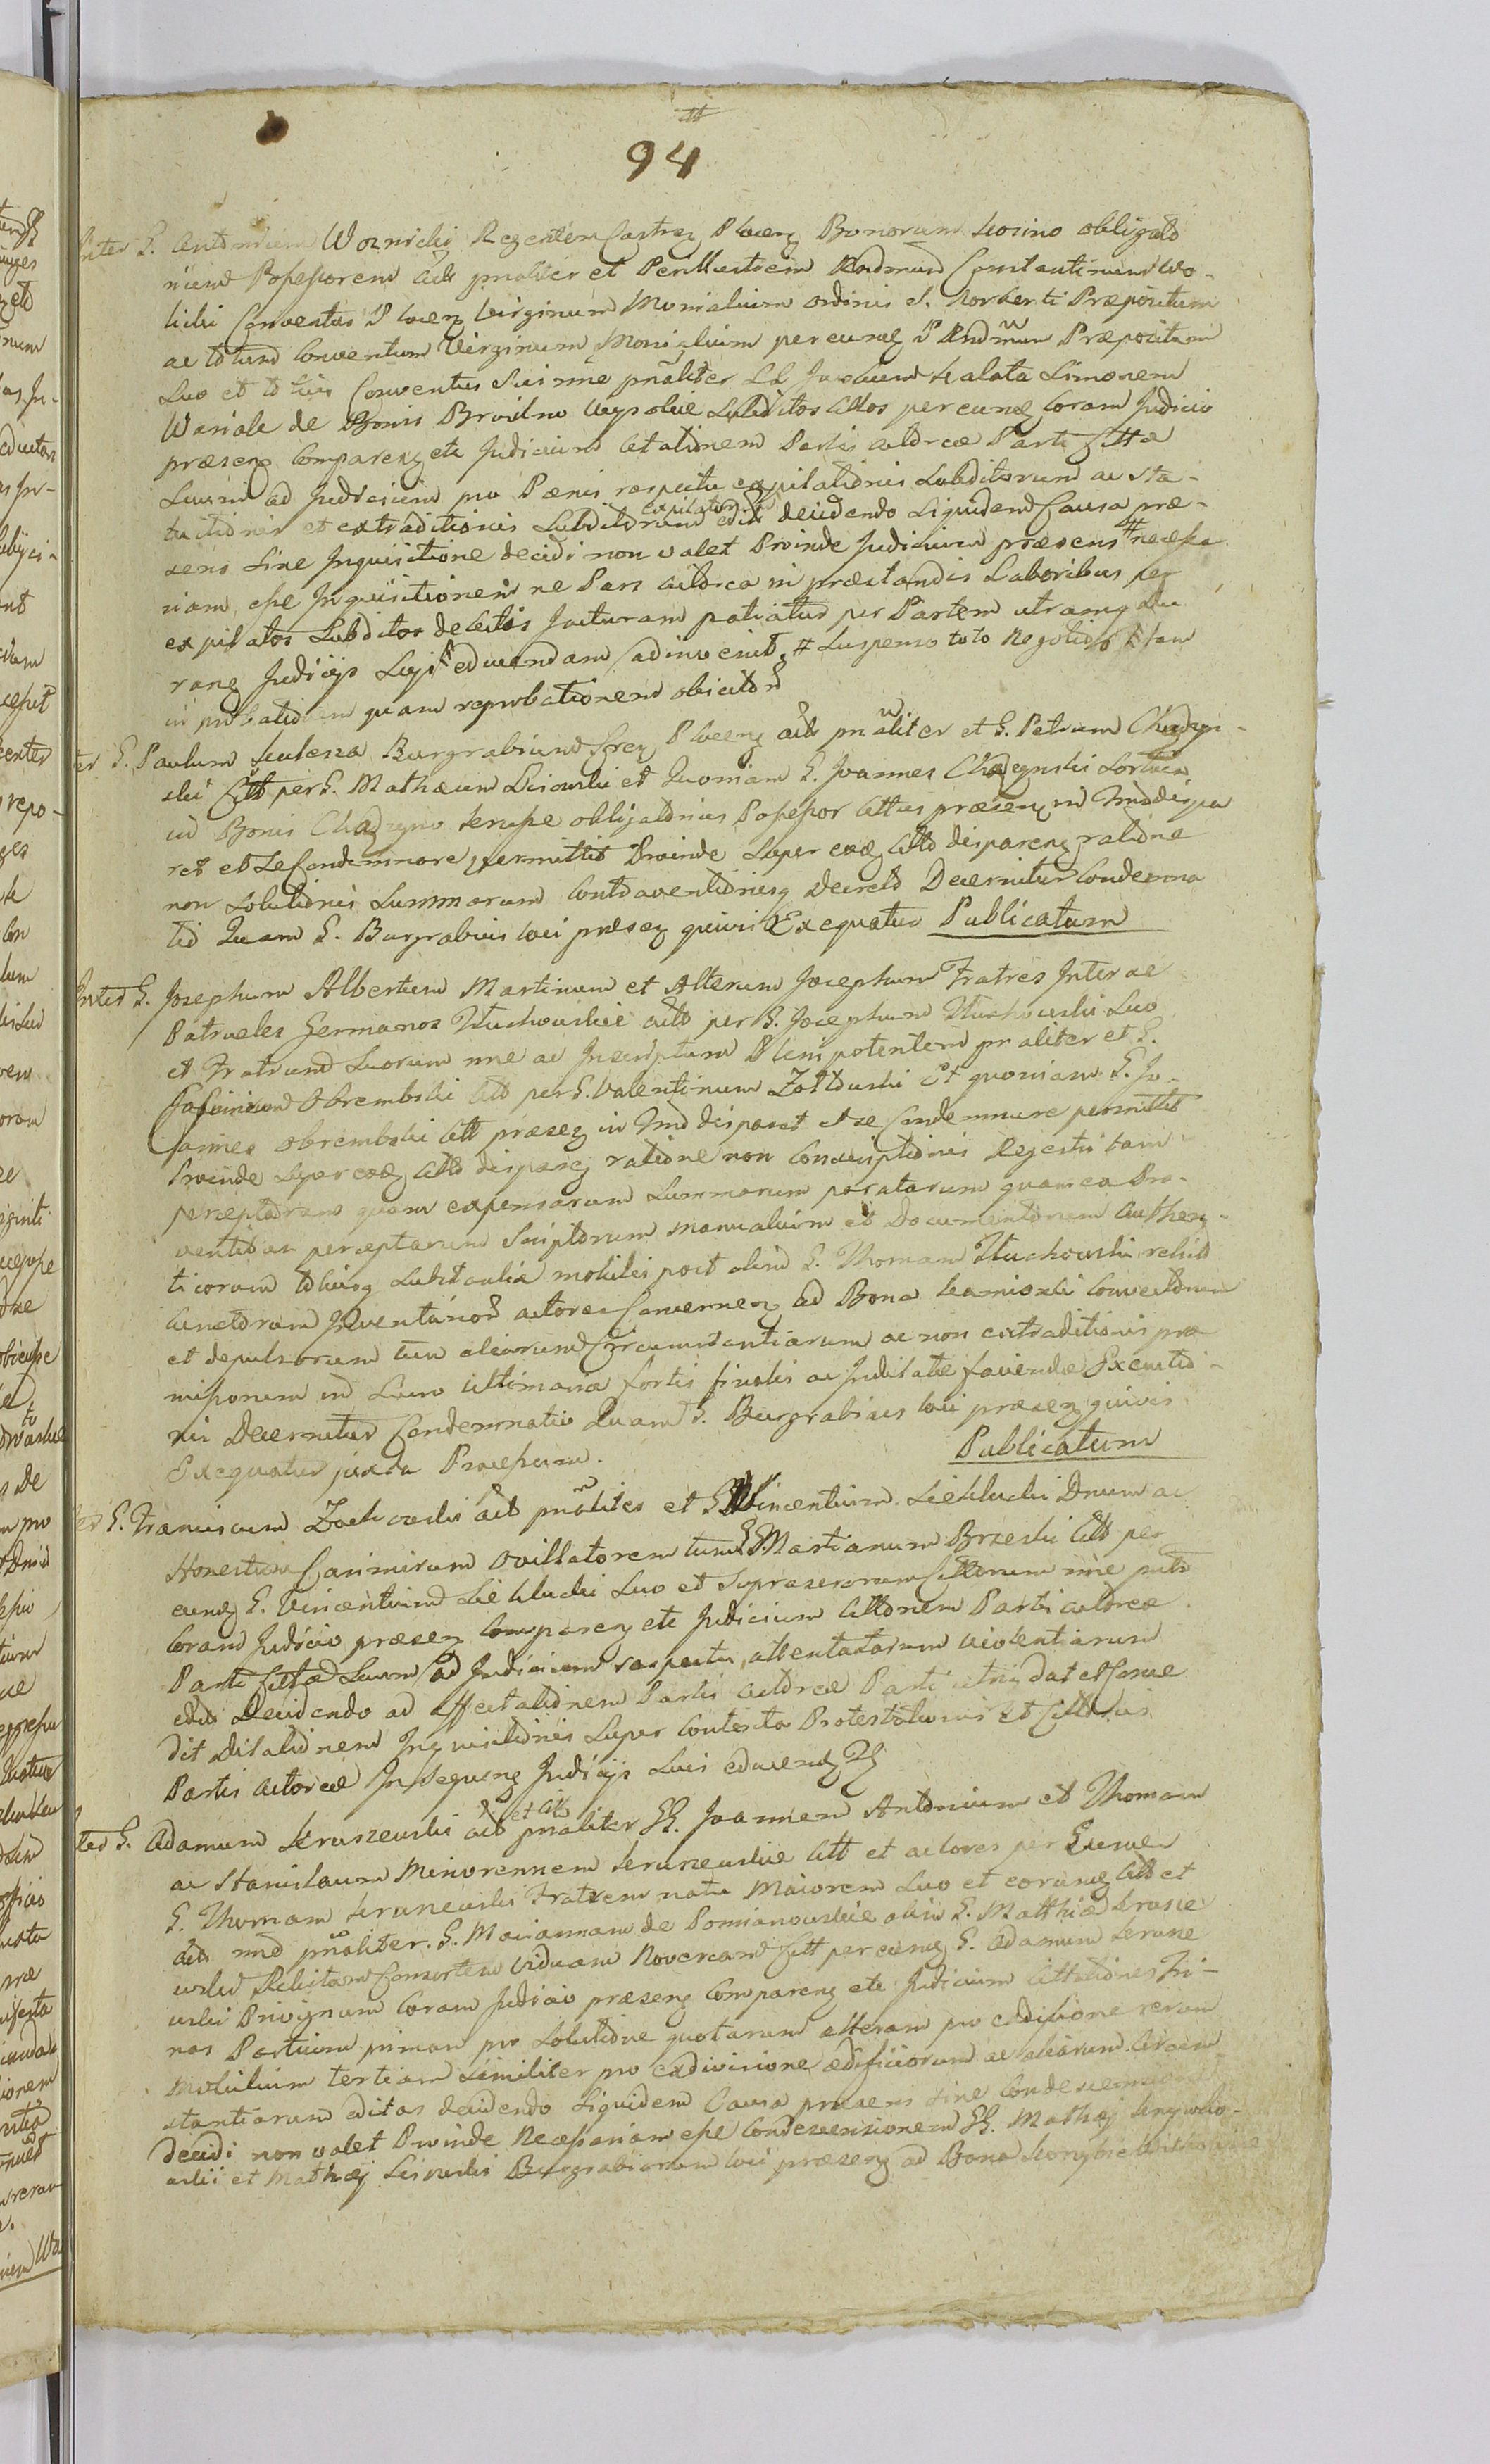 94
Inter G. Antonium Woznicki Regentem Castren Plocen Bonorum Kosino obligato
rium Possessorem Act pnaliter et Perillustrem Rndmum Constantinum Wo-
licki Conventus Plocen Virginum Monialium Ordinis S. Norberti Præpositum
ac totum Conventum Virginum Monialium per eundq P Rndmum Præpositum
Suo et totius Conventus Sui nne pnaliter LL Jacobum Kalata Simonem
Wasiak de Bonis Subditos Cittos per eundq Coram Judicio
præsenq Comparenq etc Judicium Citationem Partis actoreæ Parti Cittæ
Suum ad Judicium pro Pænis respectu expilationis Subditorum ac sta-
tuitionis et extraditionis Subditorum expilatorum edit decidendo Siquidem Causa præ-
sens Sine Inquisitione decidi non valet Proinde Judicium præsens # necessa
riam esse Inquisitionem ne Pars actorea in præstandis Laboribus per
expilatos Subditos debitis Jacturam patiatur per Partem utramq
ranq Judicijs educendam adinvenit # Suspenso toto Negotio tam
in probationem quam reprobationem obicitor
Inter G. Paulum Kulesza Burgrabium Cren Plocen act pnaliter et G. Petrum Chądzyn-
ski Citt per G. Mathæum Lisowski et Quoniam G. Joannes Chądzynski Sortium
in Bonis Chądzyno Krusze obligatorius Possessor Cittus præsenq in Tmo dispa
ret et se Condemnare permittit Proinde Super eoq Citto disparenq ratione
non Solutionis Summarum Contraventionisq Decreto Decernitur Condemna
tio Quam G. Burgrabius loci præsenq quivis Exequatur Publicatum
Inter G. Josephum Albertum Martinum et Alterum Josephum Fratres Inter se
Patrueles Germanos Tłuchowskie act per G. Josephum Tłuchowski Suo
et Fratrum Suorum nne ac Inscriptum Plenipotentem pnaliter et G.
Obrembski Citt per G. Valentinum Żołtowski Et quoniam G. Jo-
annes Obrembski Citt præsenq in Tmo disparet et se Condemnare permittit
Proinde Super eoq Citto disparenq ratione non Conscriptionis Regestri tam
perceptorum quam expensarum Summarum paratarum quam ea Pro-
ventibus perceptarum Scriptorum manualium et Documentorum authen-
ticorum totiusq Substantiæ mobilis post olim G. Thomam Tłuchowski relictæ
cunctorum Inventarior actores Concernenq ad Bona Kamionki Convectorum
et depulsorum tum aliarum Circumstantiarum ac non extraditionis præ-
missorum in Suro Ultimaria fortis finalis ac Judicatæ faciendæ Executio-
nis Decernitur Condemnatio Quam G. Burgrabius loci præsenq quivis
Exequatur juxta Processum. Publicatum
Inter G. Franciscum Zochowski act pnaliter et G. Vincentium Siekłucki Dnum ac
Honestum Casimirum Ovillatorem tum G. Martianum Brzeski Citt per
eundq G. Vincentium Siekłucki Suo et Suprascriorum Cittorum nne pntr
Coram Judicio præsenq Comparenq etc Judicium Cittonem Parti actoreæ
Parti Cittæ Suum ad Judicium respectu attentatarum violentiarum
edit Decidendo ad Affectationem Partis actoreæ Parti utriq dat et conce
dit Dilationem Inquisitionis Super Contenta Protestationis et Cittonis
Partis actoreæ In sequenq Judicijs Suis educend
Inter G. Adamum Kraszewski act et Citt pnaliter GG. Joannem Antonium et Thomam
ac Stanislaum Minorennem Kraszewskie Citt et actores per Eundem
G. Thomam Kraszewski Fratrem natu Maiorem Suo et eorundq Citt et
act nne pnaliter. G. Mariannam de Pomianowskie olim G. Matthiæ Krasze
wski Relictam Consortem Viduam Novercam Citt per eundq G. Adamum Krasze
wski Privignum Coram Judicio præsenq Comparenq etc Judicium Cittationes Tri-
nas Partium primam pro Solutione quotarum alteram pro exdivisione rerum
mobilium tertiam similiter pro exdivisione ædificiorum ac aliarum Circum-
stantiarum editas decidendo Siquidem Causa præsens Sine Condescensione
decidi non valet Proinde Necessariam esse Condescensionem GG. Mathæi
wski et Mathæj Lisowski Burgrabiorum loci præsenq ad Bona